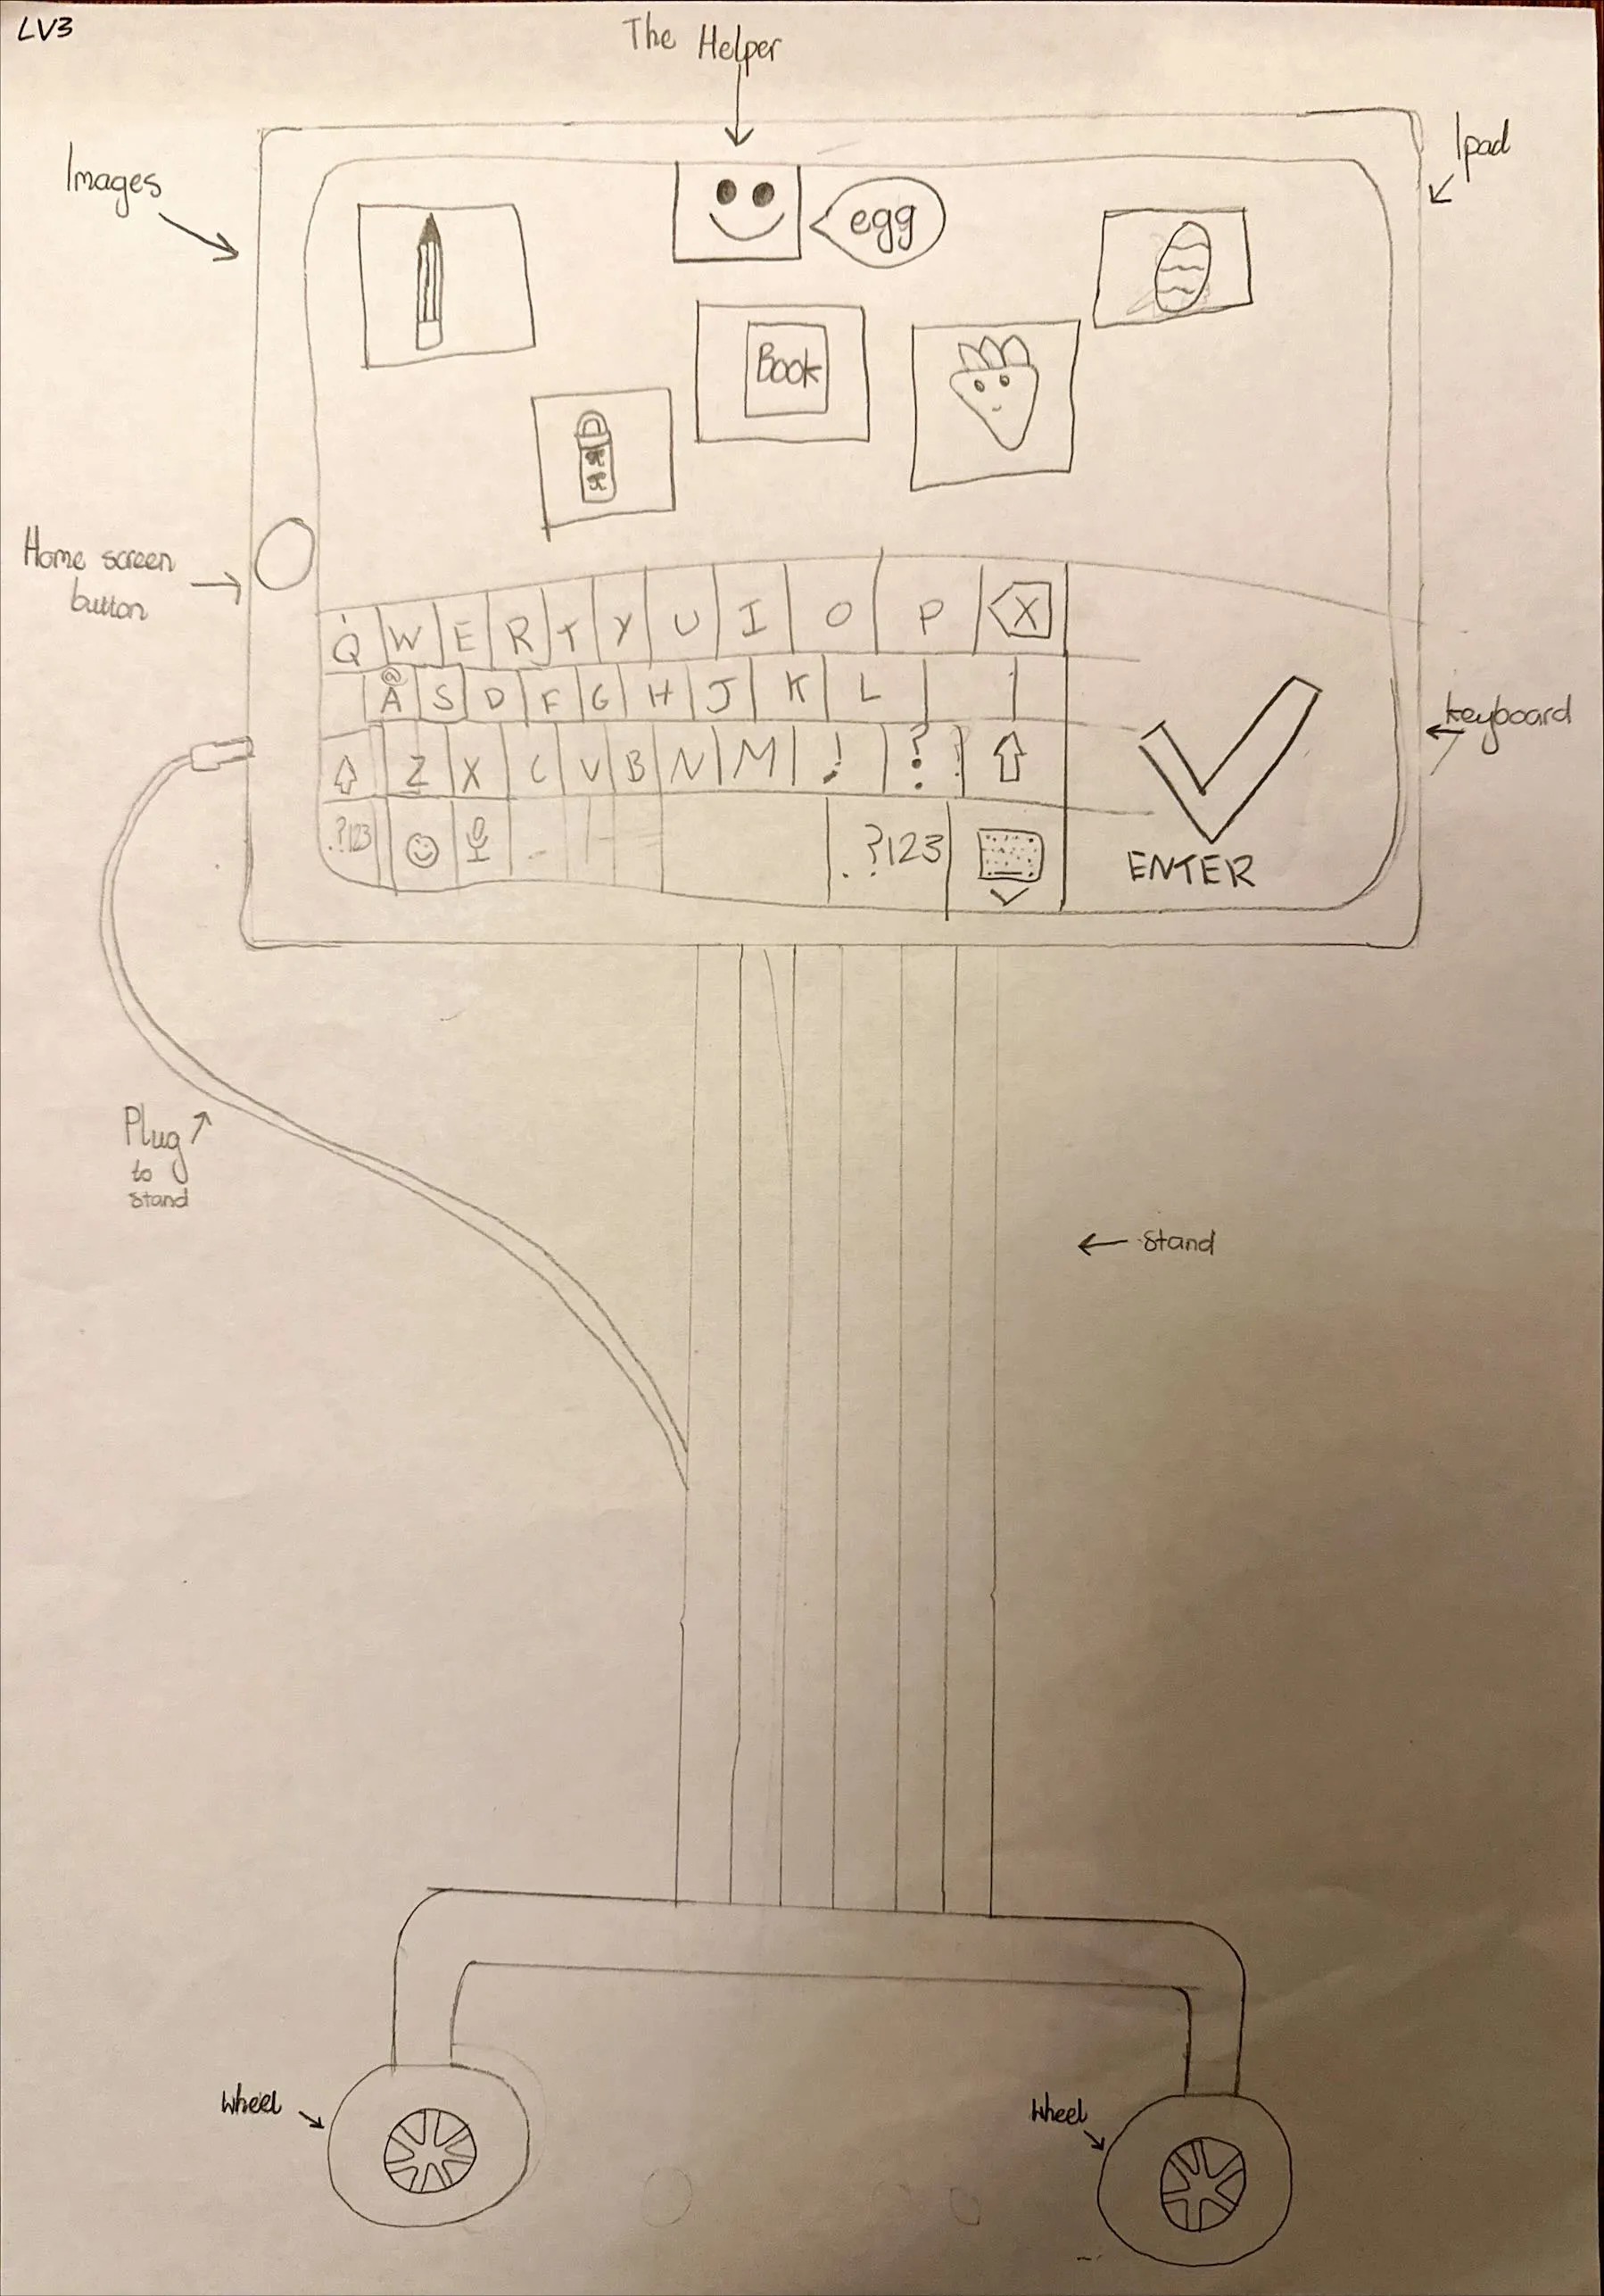 LV3
The Helper
Images
Ipad
egg
Book
Home screen
button
Q W E R T Y U I O P X
@
A S D F G H J K L
Z X C V B N M ! ?
.?123 .?123
ENTER
keyboard
Plug
to
stand
stand
wheel
wheel